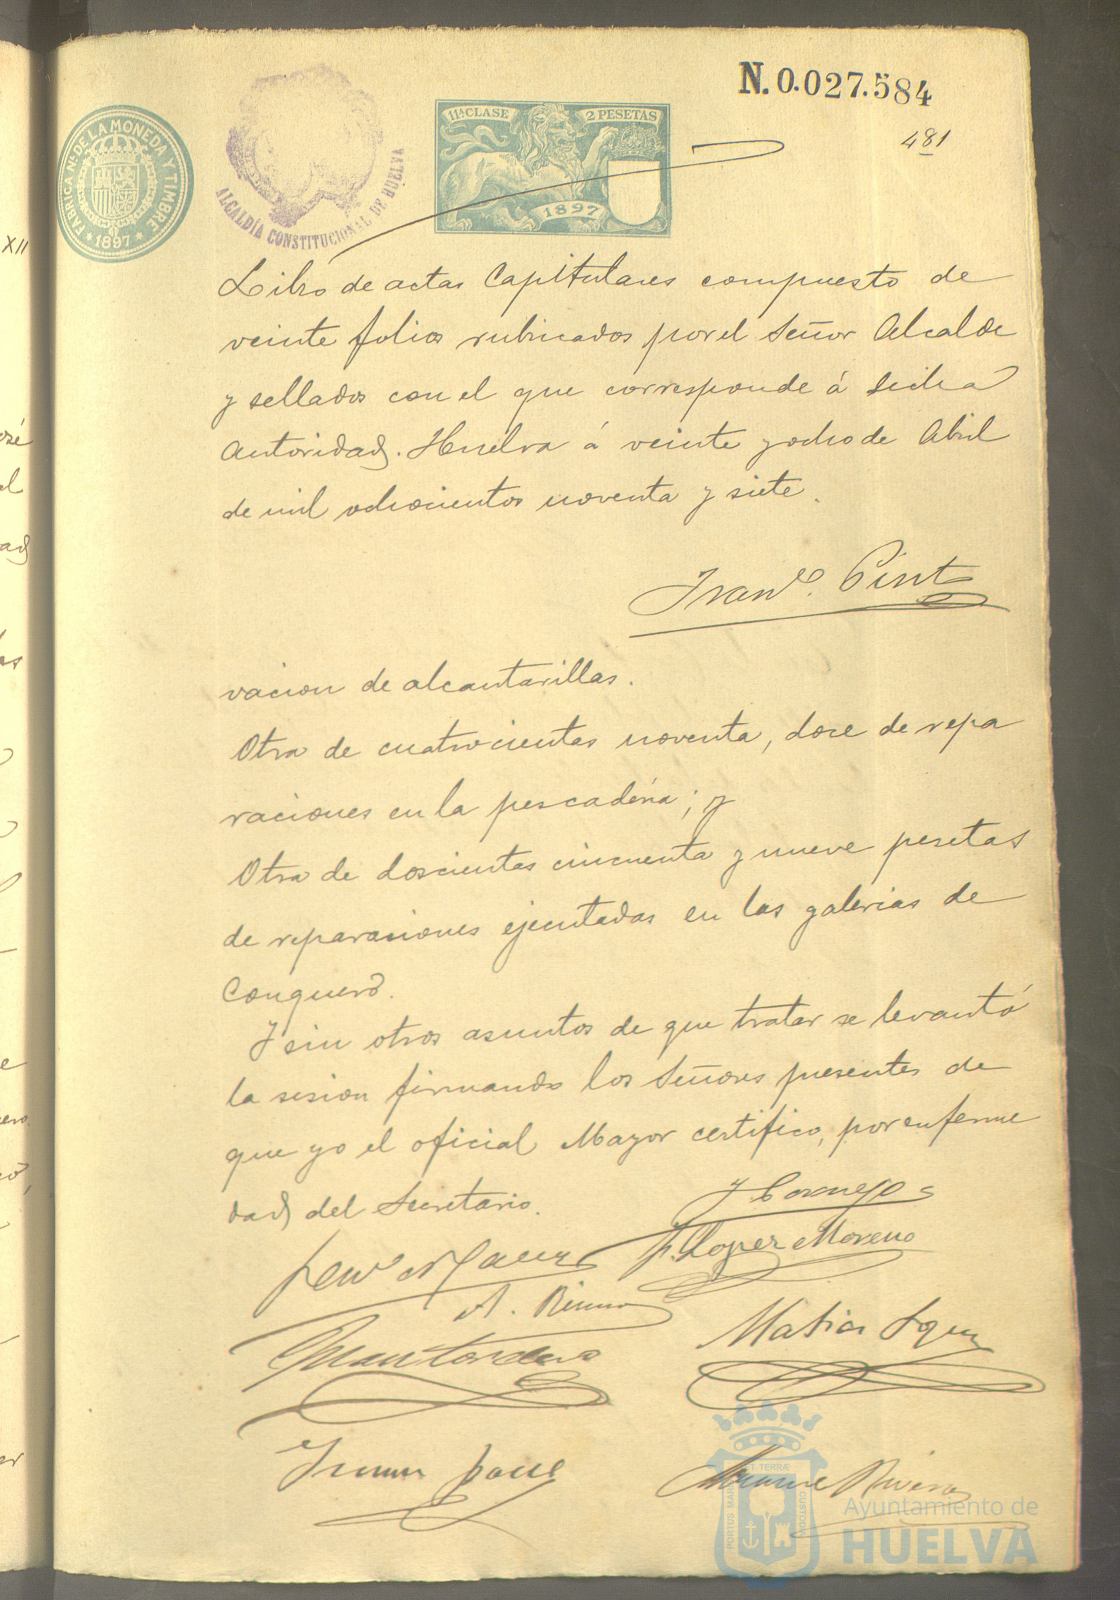 N. 0.027.584
481
11ª CLASE 2 PESETAS
1897
FABRICA Nl. DE LA MONEDA Y TIMBRE
* 1897 *
ALCALDÍA CONSTITUCIONAL DE HUELVA
XII
Libro de actas Capitulares compuesto de
veinte folios rubricados por el Señor Alcalde
y sellados con el que corresponde á dicha
autoridad. Huelva á veinte y ocho de Abril
de mil ochocientos noventa y siete.
Franco. Pint
vacion de alcantarillas.
Otra de cuatrocientas noventa, doce de repa
raciones en la pescadería; y
Otra de doscientas cincuenta y nueve pesetas
de reparaciones ejecutadas en las galerias de
Conquero.
Y sin otros asuntos de que tratar se levantó
la sesion firmando los Señores presentes de
que yo el oficial Mayor certifico, por enferme
dad del Secretario.
J Cornejo
P. Lopez Moreno
A.
Matias
Rivera
PORTUS MARIS ET TERRÆ CUSTODIA
Ayuntamiento de
HUELVA